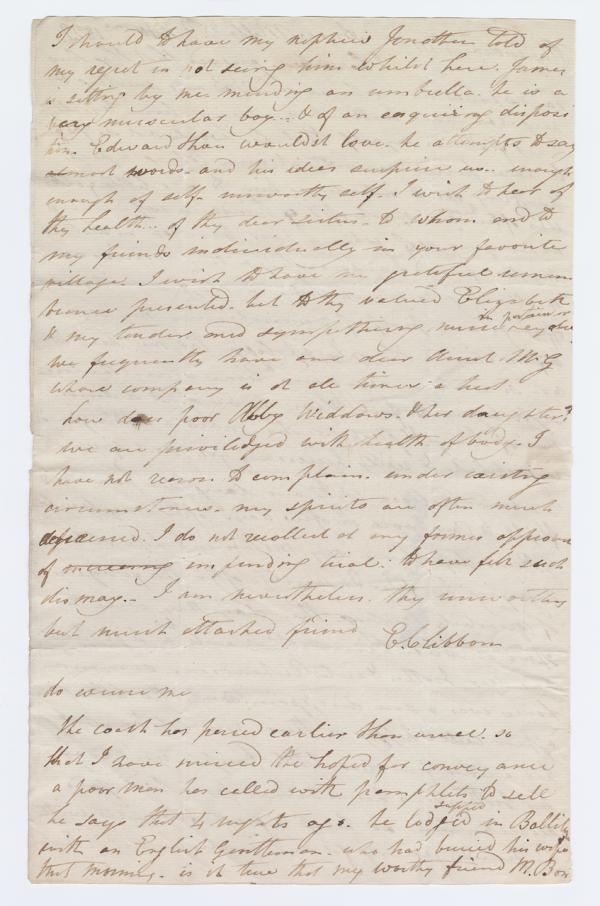 I should to have my nephew Jonothan told of
my regret in not seeing him whilst here. James
is sitting by me minding an umbrella. he is a
very muscular boy.. & of an enquiring disposi
tion. Edward thou wouldst love. he attempts to say
almost words. and his ideas surprise us. enough
enough of self. unworthy self. I wish to hear of
thy health.. of thy dear sisters. to whom and to
my friends individually in your favorite
village. I wish to have my grateful remem
brance presented. but to thy valued Elizabeth
& my tender and sympathising nurse
we frequently have our dear Aunt M G
whose company is at all times a treat
how does poor Abby Widdows. & her daughter?
we are priviledged with health of body. I
have not reason to complain. under existing
circumstances. my spirits are often much
depressed. I do not recollect at any former
of impending trial. to have felt such
dismay.. I am nevertheless. thy unworthy
but much attached friend E. Clibborn
do excuse me
the coach has passed earlier than usual. so
that I have missed the hoped for conveyance
a poor man has called with pamphlets to sell
he says that 4 nights ago. he lodged in
with an English Gentleman. who had buried his wife
that morning. is it true that my worthy friend M. Bon